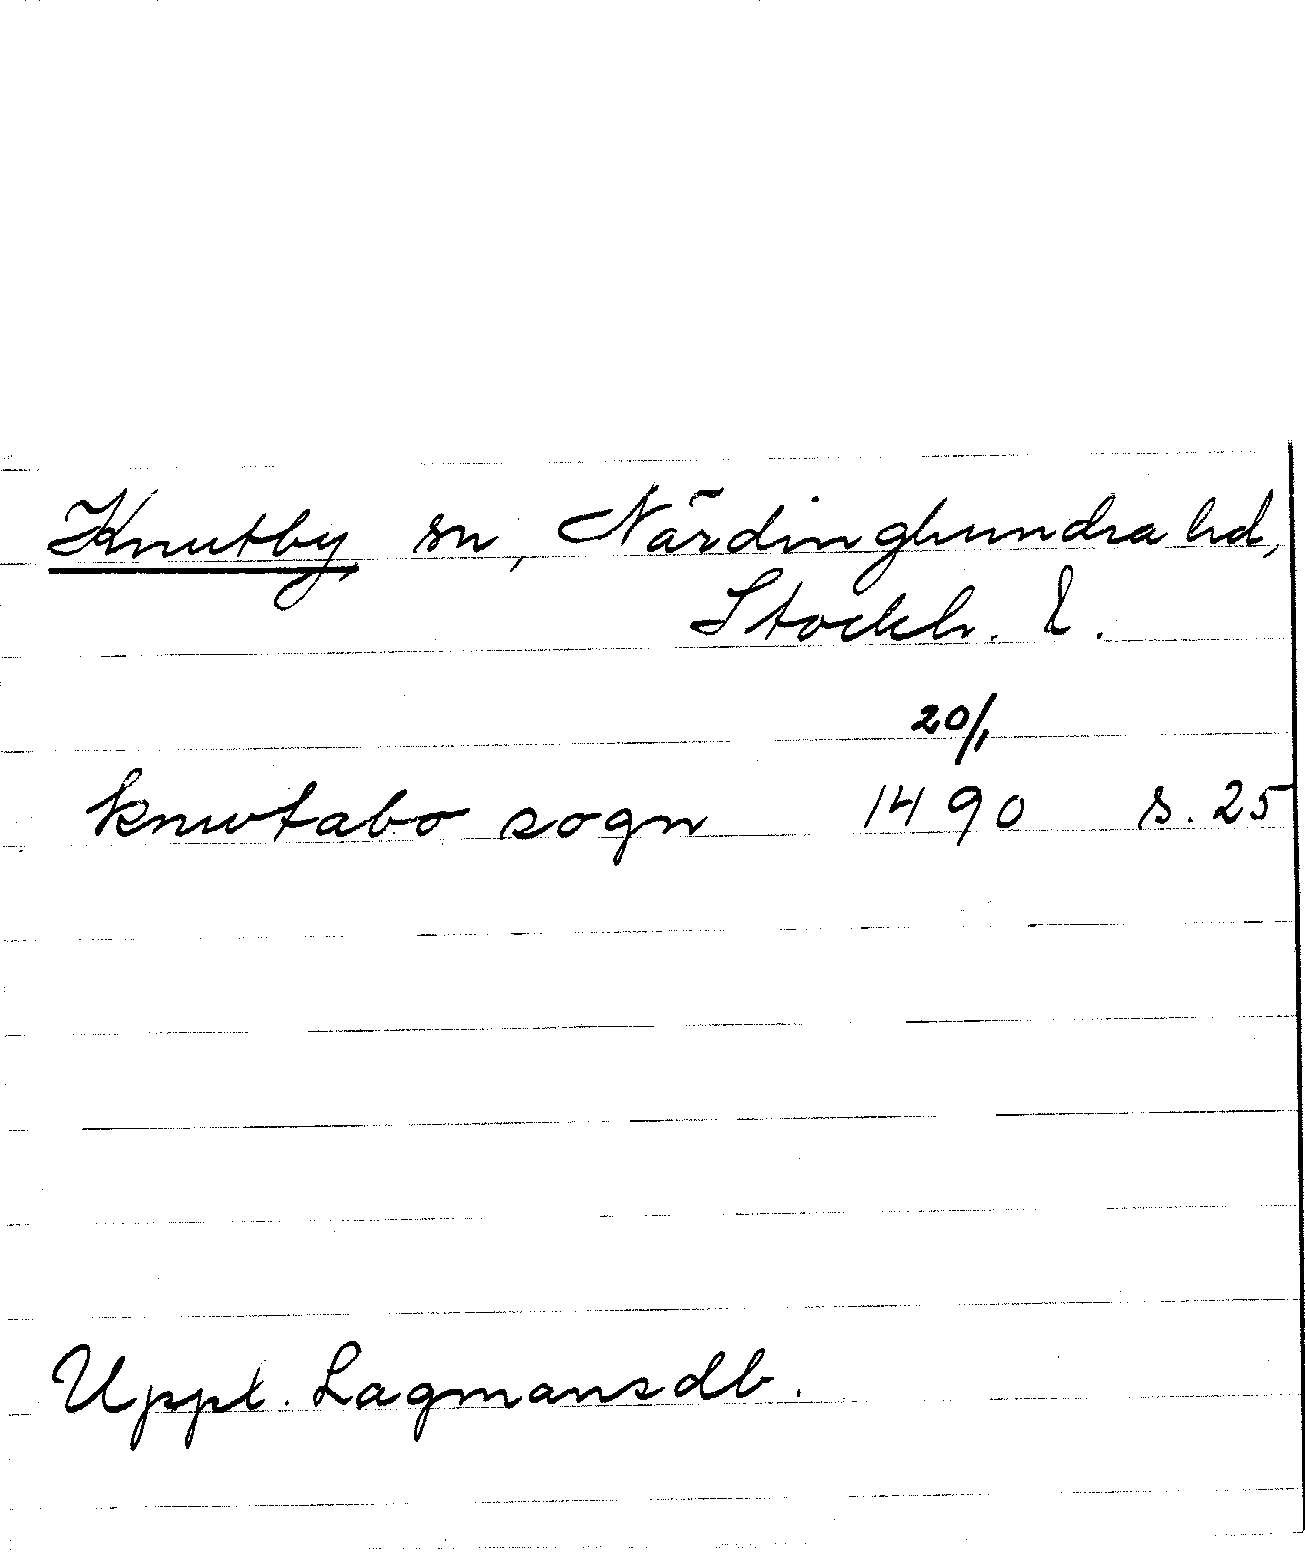 Knutby sn, Närdinghundra hd,
Stockh. l.
20/1
knwtabo sogn 1490 s. 25
Uppl. Lagmansdb.